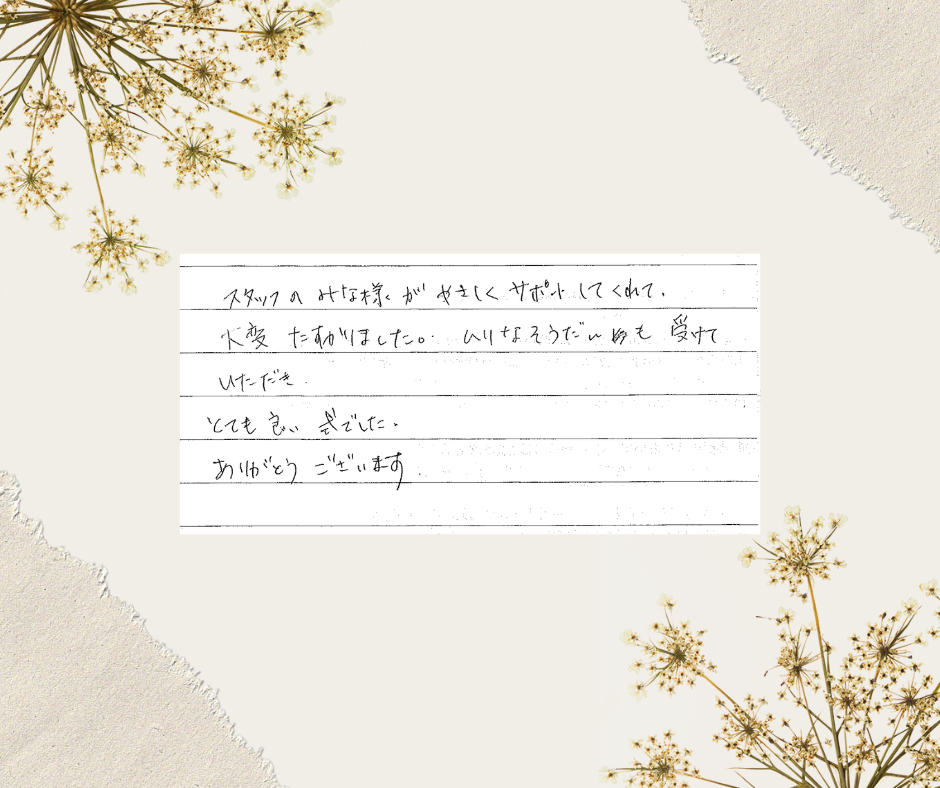 スタッフのみな様がやさしくサポートしてくれて、
大変たすかりました。ムリなそうだんも受けて
いただき、
とても良い式でした。
ありがとうございます